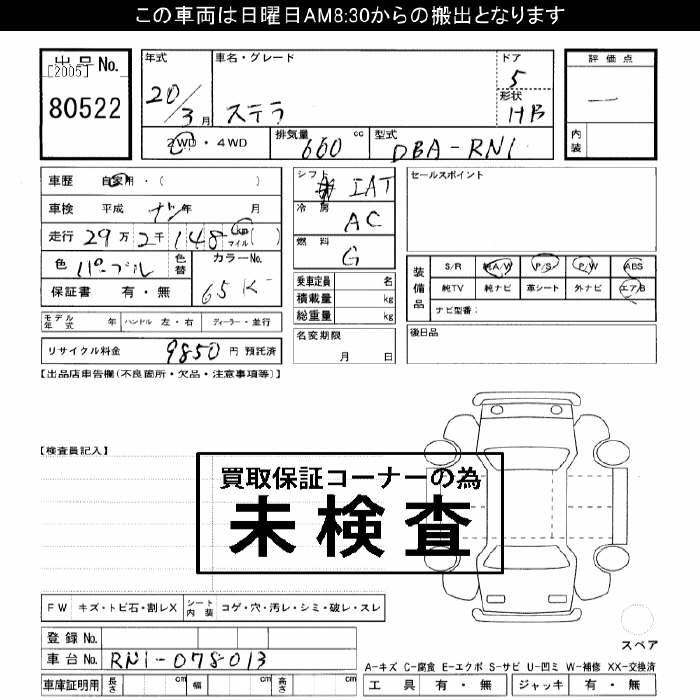 この車両は日曜日AM8:30からの搬出となります
出品No.
[2005]
80522
年式 車名・グレード ドア
20/3月 ステラ 5
形状
HB
評価点
一
内装
2WD・4WD 排気量 660 cc 型式 DBA-RN1
車歴 自家用・( )
車検 平成 年 月
走行 29万2千148 km マイル ( )
色 パープル 色替 カラーNo.
65K
保証書 有・無
シフト IAT
冷房 AC
燃料 G
乗車定員 名
積載量 kg
総重量 kg
セールスポイント
装備品 S/R 純A/W P/S P/W ABS
純TV 純ナビ 革シート 外ナビ エアB
ナビ型番:
モデル年式 年 ハンドル 左・右 ディーラー・並行
名変期限
月 日
後日品
リサイクル料金 9850 円 預託済
【出品店車告欄(不良箇所・欠品・注意事項等)】
【検査員記入】
買取保証コーナーの為
未検査
FW キズ・トビ石・割レX シート内装 コゲ・穴・汚レ・シミ・破レ・スレ
登録No.
車台No. RN1-078013
スペア
A-キズ C-腐食 E-エクボ S-サビ U-凹ミ W-補修 XX-交換済
車庫証明用 長さ cm 幅 cm 高さ cm
工具 有・無 ジャッキ 有・無